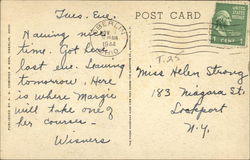 Tues. Eve.
POST CARD
Having nice
time. Got here
last eve. Leaving
tomorrow. Here
is where Margie
will take one of
her courses—
Wisners
BERLIN
1944
OHIO
1 CENT 1
T.25
Miss Helen Strong
183 Niagara St.
Lockport
N.Y.